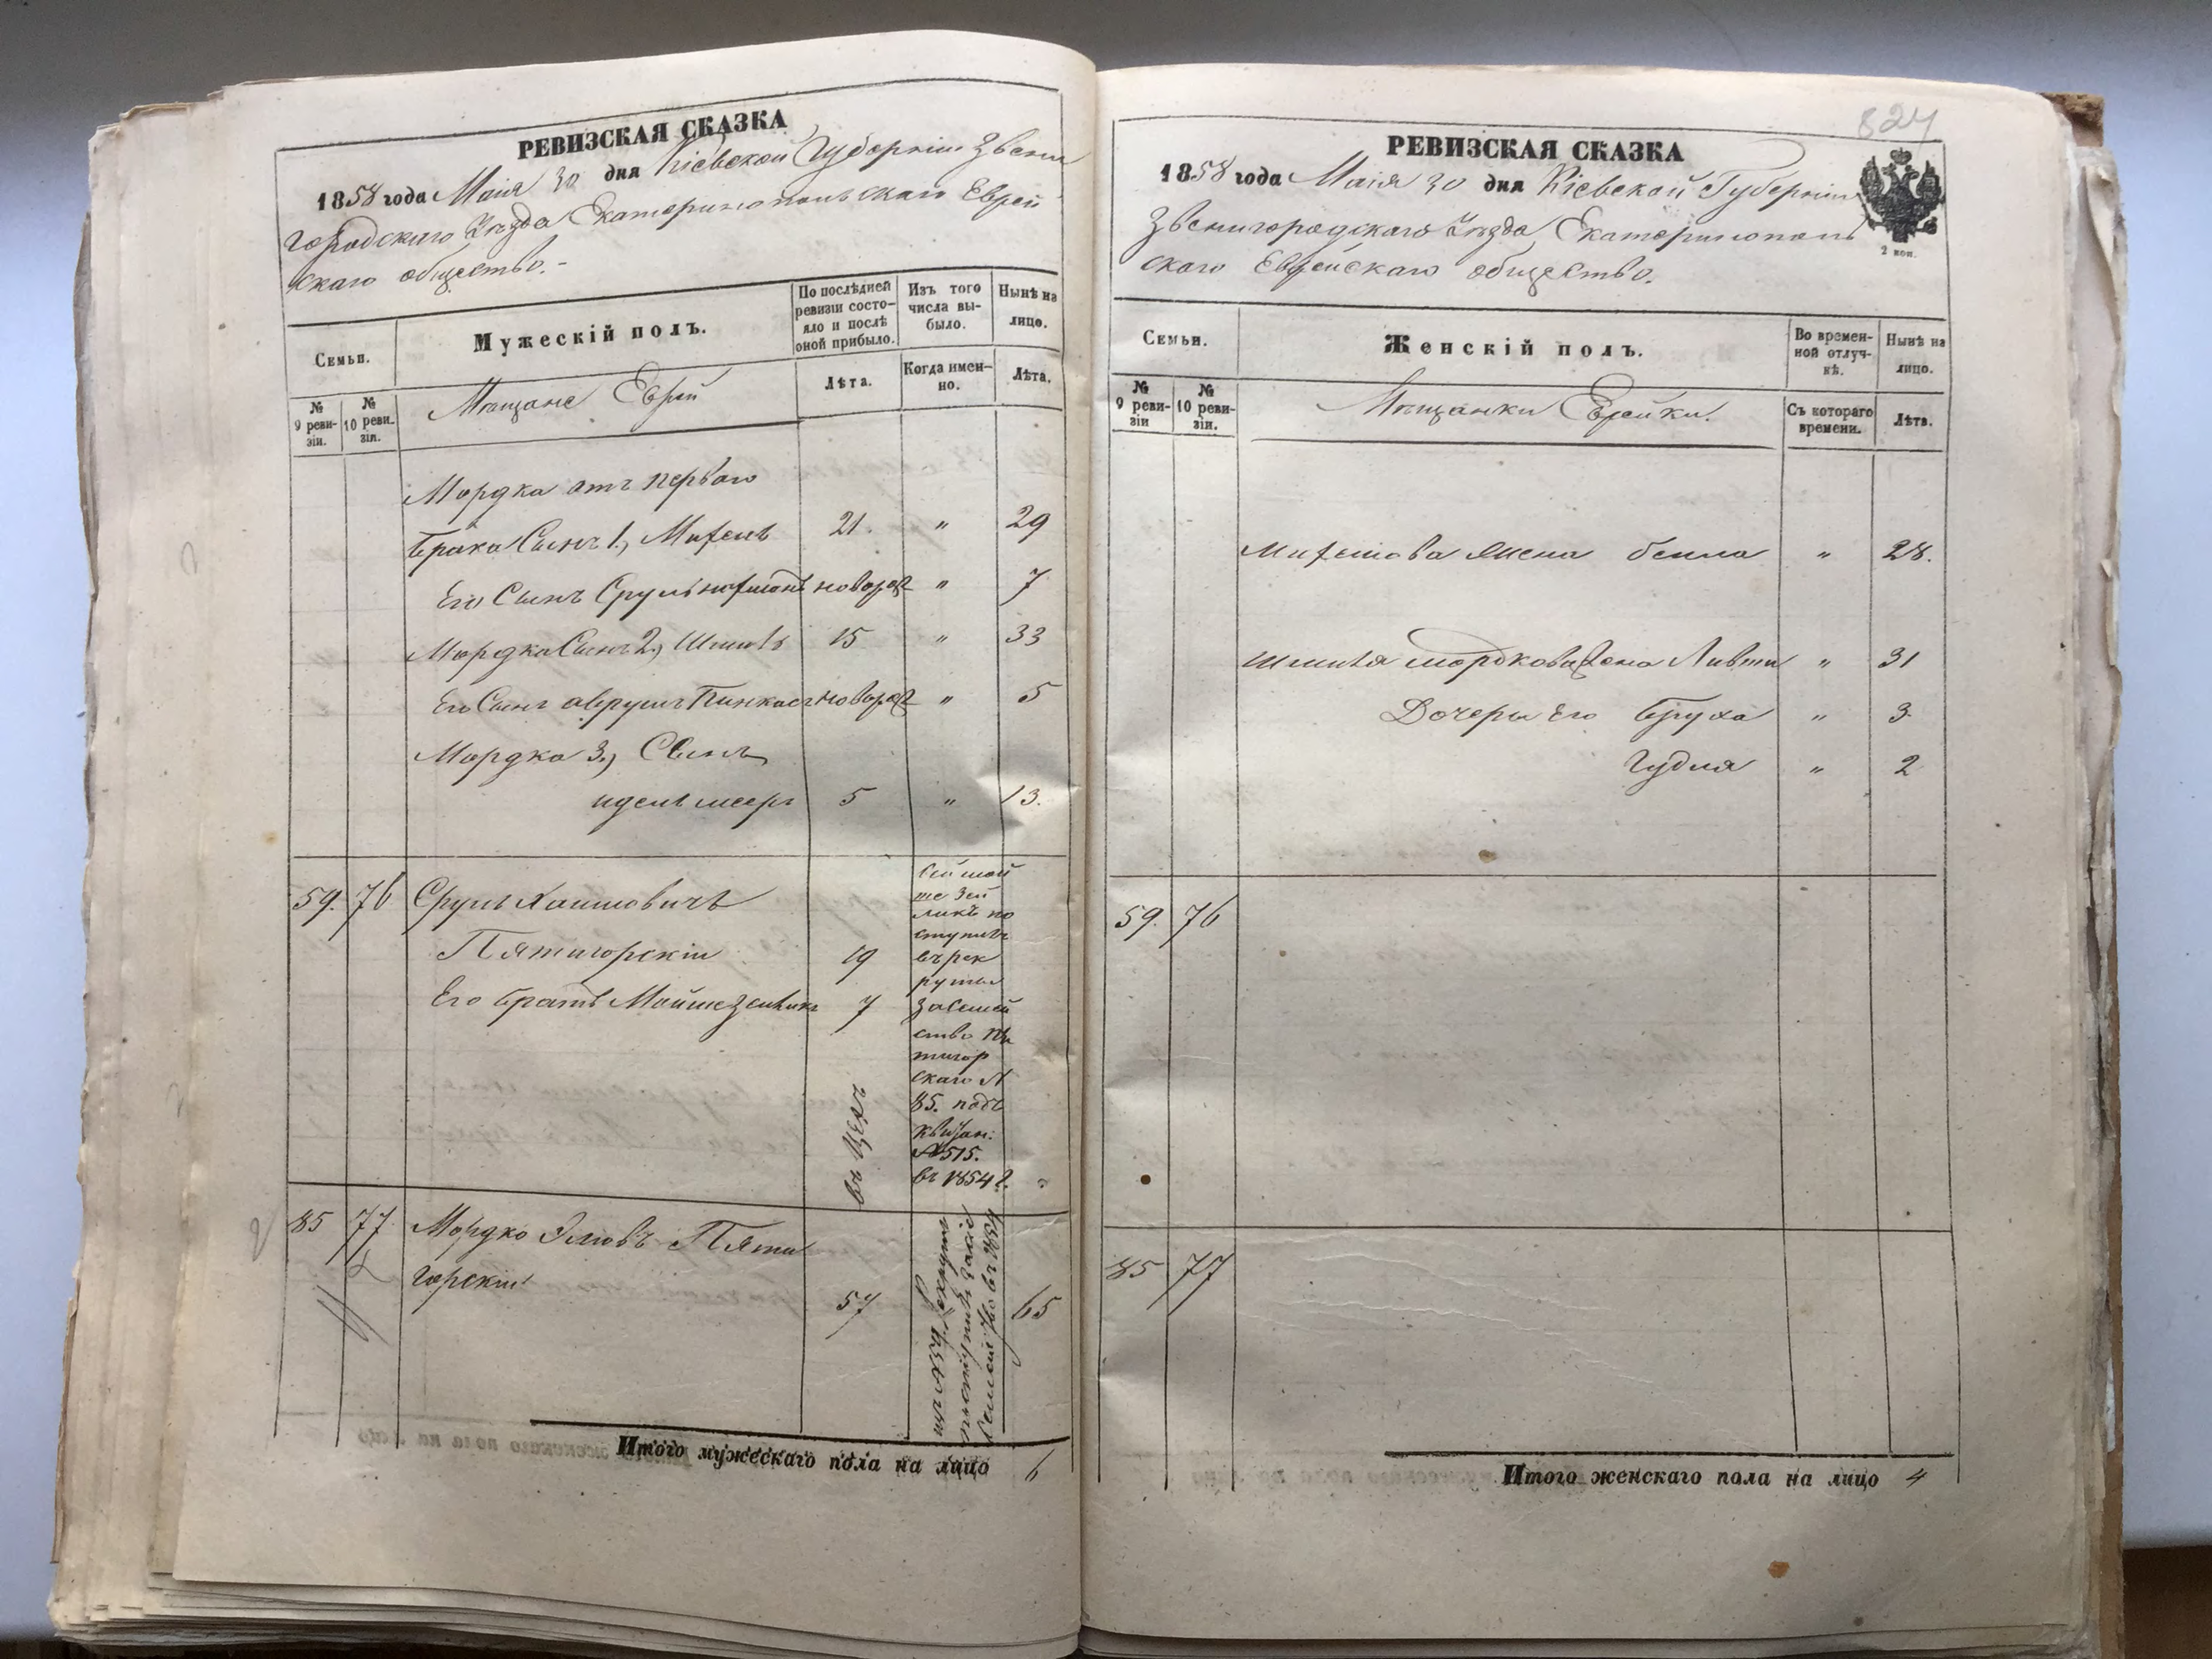 РЕВИЗСКАЯ СКАЗКА
1858 года Маія 30 дня Кіевской Губерніи Звени
городскаго Уѣзда Екатеринопольскаго Еврей
скаго общество.-
Семьи.
Мужескій полъ.
По послѣдней
ревизіи состо-
яло и послѣ
оной прибыло.
Изъ того
числа вы-
было.
Нынѣ на
лицо.
№
9 реви-
зіи.
№
10 реви-
зіи.
Мѣщане Евреи
Лѣта.
Когда имен-
но.
Лѣта.
Мордка отъ перваго
брака Сынъ 1, Михель 21. " 29
Его Сынъ Сруль новорож " 7
Мордка Сынъ 2, Шмиль 15 " 33
Его Сынъ аврумъ Пинкасъ новорож " 5
Мордка 3, Сынъ
идель меер 5 " 13.
59. 76 Сруль Хаимовичъ
Пятигорскій 19
Его братъ Мойше Зейликъ 7
Сей мой
ше Зей
ликъ по
ступилъ
въ рек
руты
за Семей
ство Пя
тигор
скаго №
85. подъ
квитан:
№ 515.
въ 1854 г. "
въ цехъ
85 77 Мордко Элювъ Пяти
горскій 57 65
Итого мужескаго пола на лицо 6
824
РЕВИЗСКАЯ СКАЗКА
1858 года Маія 30 дня Кіевской Губерніи
Звенигородскаго Уѣзда Екатеринополь
скаго Еврейскаго общество.
2 коп.
Семьи.
Женскій полъ.
Во времен-
ной отлуч-
кѣ.
Нынѣ на
лицо.
№
9 реви-
зіи
№
10 реви-
зіи.
Мѣщанки Еврейки.
Съ котораго
времени.
Лѣта.
Михелова Жена бейла " 28.
Шмиля мордкова жена Ливши " 31
Дочеры Его Бруха " 3.
Гудля " 2
59. 76
85 77
Итого женскаго пола на лицо 4